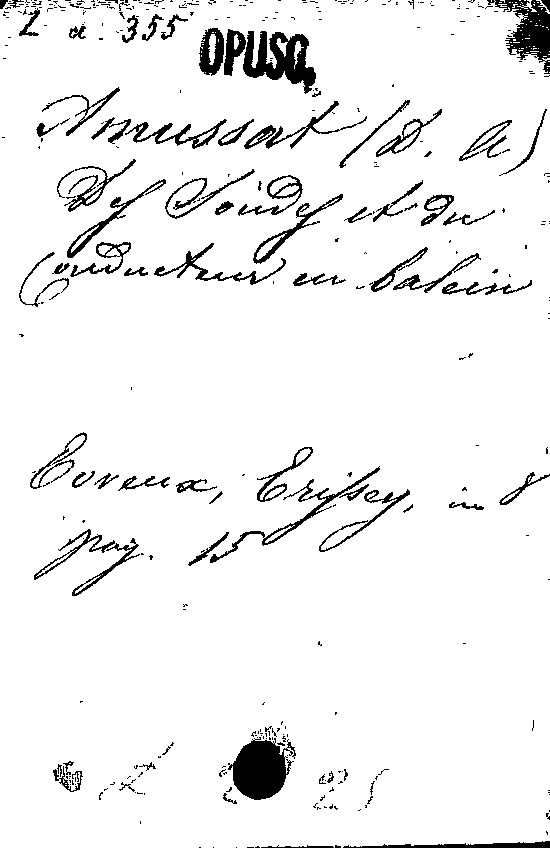 L a. 355
OPUSC.
Amussat (D. A)
Des Sondes et du
Conducteur en balein
Evreux, Erissey, in 8
pag. 15